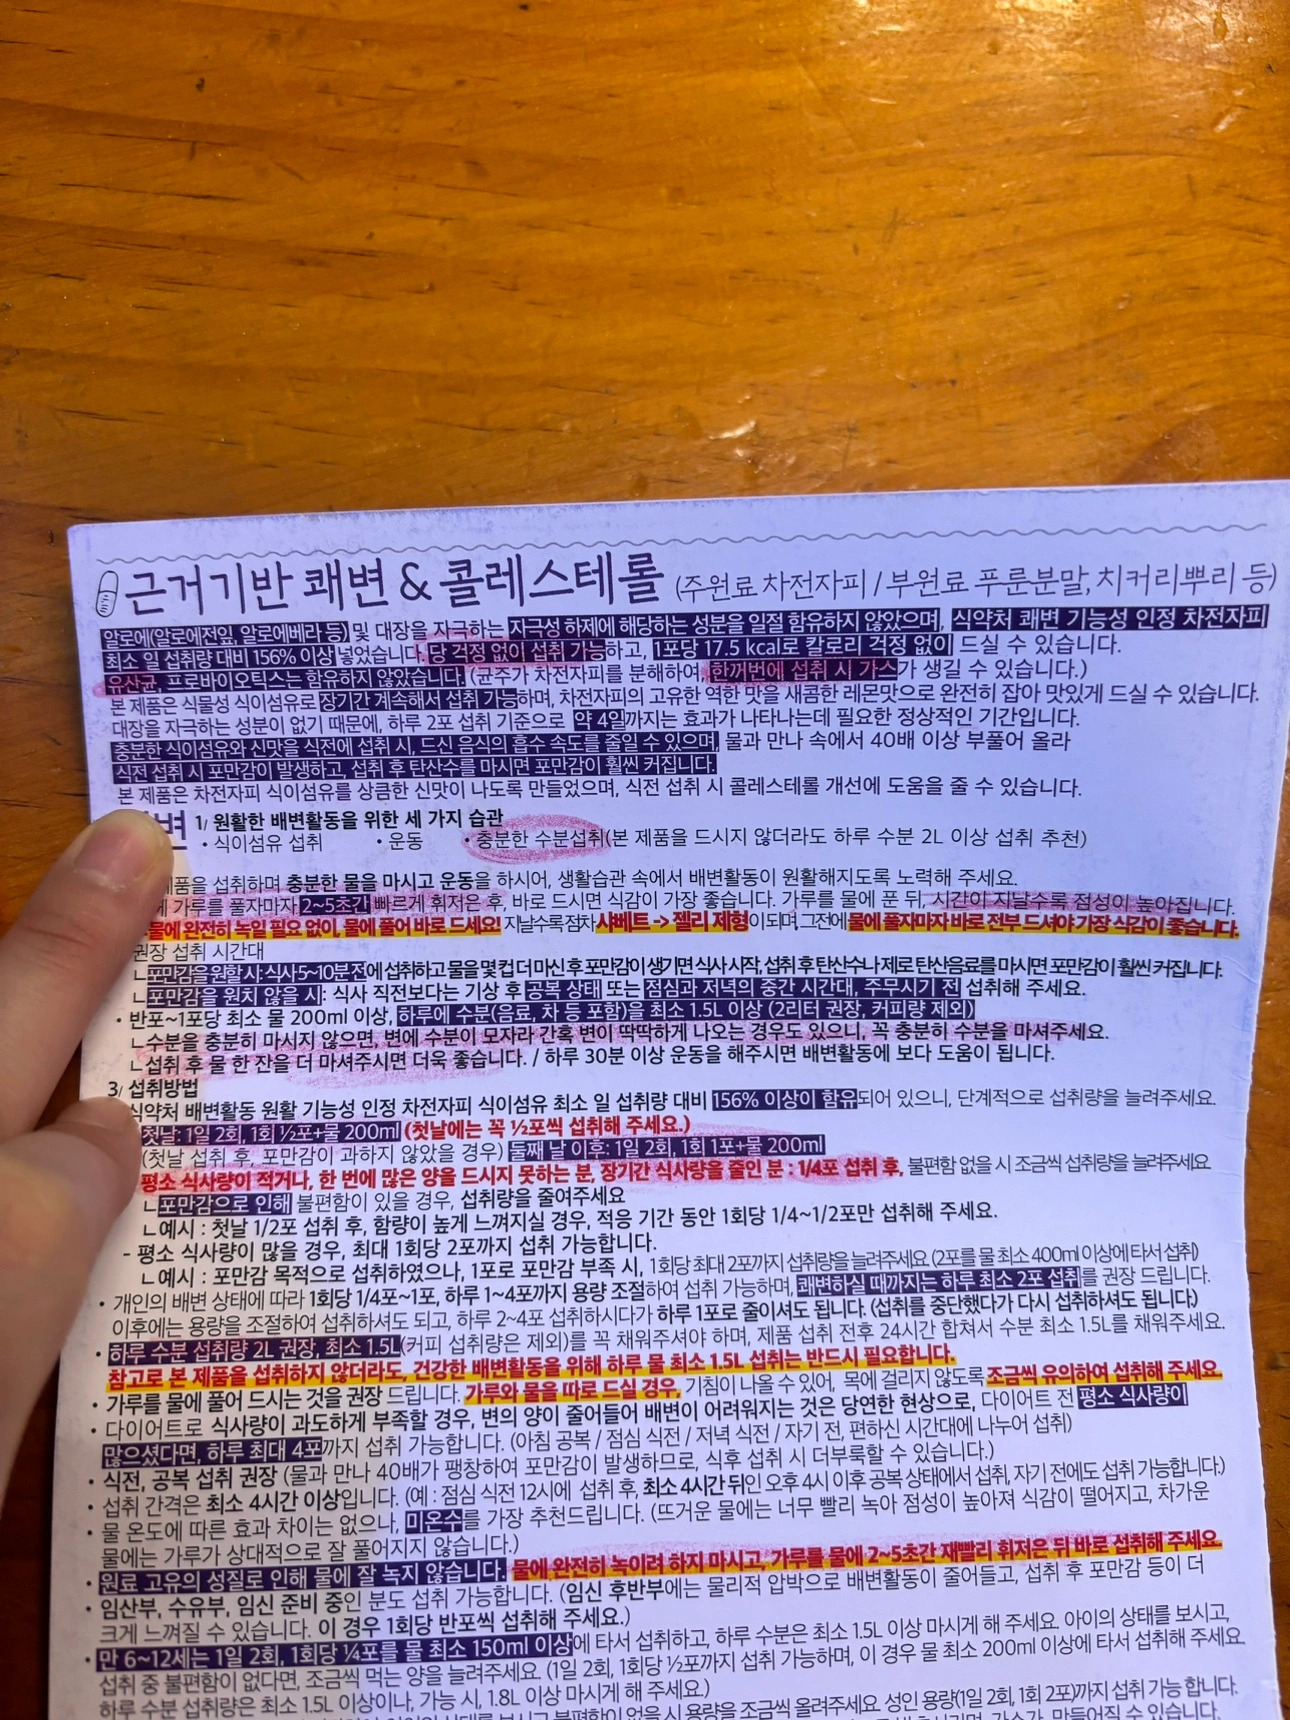 근거기반 쾌변 & 콜레스테롤 (주원료 차전자피 / 부원료 푸룬분말, 치커리뿌리 등)
알로에(알로에전잎, 알로에베라 등) 및 대장을 자극하는 자극성 하제에 해당하는 성분을 일절 함유하지 않았으며, 식약처 쾌변 기능성 인정 차전자피
최소 일 섭취량 대비 156% 이상 넣었습니다. 당 걱정 없이 섭취 가능하고, 1포당 17.5 kcal로 칼로리 걱정 없이 드실 수 있습니다.
유산균, 프로바이오틱스는 함유하지 않았습니다. (균주가 차전자피를 분해하여, 한꺼번에 섭취 시 가스가 생길 수 있습니다.)
본 제품은 식물성 식이섬유로 장기간 계속해서 섭취 가능하며, 차전자피의 고유한 역한 맛을 새콤한 레몬맛으로 완전히 잡아 맛있게 드실 수 있습니다.
대장을 자극하는 성분이 없기 때문에, 하루 2포 섭취 기준으로 약 4일까지는 효과가 나타나는데 필요한 정상적인 기간입니다.
충분한 식이섬유와 신맛을 식전에 섭취 시, 드신 음식의 흡수 속도를 줄일 수 있으며, 물과 만나 속에서 40배 이상 부풀어 올라
식전 섭취 시 포만감이 발생하고, 섭취 후 탄산수를 마시면 포만감이 훨씬 커집니다.
본 제품은 차전자피 식이섬유를 상큼한 신맛이 나도록 만들었으며, 식전 섭취 시 콜레스테롤 개선에 도움을 줄 수 있습니다.
변 1/ 원활한 배변활동을 위한 세 가지 습관
• 식이섬유 섭취 • 운동 • 충분한 수분섭취(본 제품을 드시지 않더라도 하루 수분 2L 이상 섭취 추천)
제품을 섭취하며 충분한 물을 마시고 운동을 하시어, 생활습관 속에서 배변활동이 원활해지도록 노력해 주세요.
가루를 풀자마자 2~5초간 빠르게 휘저은 후, 바로 드시면 식감이 가장 좋습니다. 가루를 물에 푼 뒤, 시간이 지날수록 점성이 높아집니다.
물에 완전히 녹일 필요 없이, 물에 풀어 바로 드세요! 지날수록 점차 샤베트 -> 젤리 제형이 되며, 그전에 물에 풀자마자 바로 전부 드셔야 가장 식감이 좋습니다.
권장 섭취 시간대
ㄴ포만감을 원할 시: 식사 5~10분 전에 섭취하고 물을 몇 컵 더 마신 후 포만감이 생기면 식사 시작, 섭취 후 탄산수나 제로 탄산음료를 마시면 포만감이 훨씬 커집니다.
ㄴ포만감을 원치 않을 시: 식사 직전보다는 기상 후 공복 상태 또는 점심과 저녁의 중간 시간대, 주무시기 전 섭취해 주세요.
• 반포~1포당 최소 물 200ml 이상, 하루에 수분(음료, 차 등 포함)을 최소 1.5L 이상 (2리터 권장, 커피량 제외)
ㄴ수분을 충분히 마시지 않으면, 변에 수분이 모자라 간혹 변이 딱딱하게 나오는 경우도 있으니, 꼭 충분히 수분을 마셔주세요.
ㄴ섭취 후 물 한 잔을 더 마셔주시면 더욱 좋습니다. / 하루 30분 이상 운동을 해주시면 배변활동에 보다 도움이 됩니다.
3/ 섭취방법
식약처 배변활동 원활 기능성 인정 차전자피 식이섬유 최소 일 섭취량 대비 156% 이상이 함유되어 있으니, 단계적으로 섭취량을 늘려주세요.
첫날: 1일 2회, 1회 ½포+물 200ml (첫날에는 꼭 ½포씩 섭취해 주세요.)
(첫날 섭취 후, 포만감이 과하지 않았을 경우) 둘째 날 이후: 1일 2회, 1회 1포+물 200ml
평소 식사량이 적거나, 한 번에 많은 양을 드시지 못하는 분, 장기간 식사량을 줄인 분 : 1/4포 섭취 후, 불편함 없을 시 조금씩 섭취량을 늘려주세요
ㄴ포만감으로 인해 불편함이 있을 경우, 섭취량을 줄여주세요
ㄴ예시 : 첫날 1/2포 섭취 후, 함량이 높게 느껴지실 경우, 적응 기간 동안 1회당 1/4~1/2포만 섭취해 주세요.
- 평소 식사량이 많을 경우, 최대 1회당 2포까지 섭취 가능합니다.
ㄴ예시 : 포만감 목적으로 섭취하였으나, 1포로 포만감 부족 시, 1회당 최대 2포까지 섭취량을 늘려주세요 (2포를 물 최소 400ml 이상에 타서 섭취)
• 개인의 배변 상태에 따라 1회당 1/4포~1포, 하루 1~4포까지 용량 조절하여 섭취 가능하며, 쾌변하실 때까지는 하루 최소 2포 섭취를 권장 드립니다.
이후에는 용량을 조절하여 섭취하셔도 되고, 하루 2~4포 섭취하시다가 하루 1포로 줄이셔도 됩니다. (섭취를 중단했다가 다시 섭취하셔도 됩니다.)
• 하루 수분 섭취량 2L 권장, 최소 1.5L(커피 섭취량은 제외)를 꼭 채워주셔야 하며, 제품 섭취 전후 24시간 합쳐서 수분 최소 1.5L를 채워주세요.
참고로 본 제품을 섭취하지 않더라도, 건강한 배변활동을 위해 하루 물 최소 1.5L 섭취는 반드시 필요합니다.
• 가루를 물에 풀어 드시는 것을 권장 드립니다. 가루와 물을 따로 드실 경우, 기침이 나올 수 있어, 목에 걸리지 않도록 조금씩 유의하여 섭취해 주세요.
• 다이어트로 식사량이 과도하게 부족할 경우, 변의 양이 줄어들어 배변이 어려워지는 것은 당연한 현상으로, 다이어트 전 평소 식사량이
많으셨다면, 하루 최대 4포까지 섭취 가능합니다. (아침 공복 / 점심 식전 / 저녁 식전 / 자기 전, 편하신 시간대에 나누어 섭취)
• 식전, 공복 섭취 권장 (물과 만나 40배가 팽창하여 포만감이 발생하므로, 식후 섭취 시 더부룩할 수 있습니다.)
• 섭취 간격은 최소 4시간 이상입니다. (예 : 점심 식전 12시에 섭취 후, 최소 4시간 뒤인 오후 4시 이후 공복 상태에서 섭취, 자기 전에도 섭취 가능합니다.)
• 물 온도에 따른 효과 차이는 없으나, 미온수를 가장 추천드립니다. (뜨거운 물에는 너무 빨리 녹아 점성이 높아져 식감이 떨어지고, 차가운
물에는 가루가 상대적으로 잘 풀어지지 않습니다.)
• 원료 고유의 성질로 인해 물에 잘 녹지 않습니다. 물에 완전히 녹이려 하지 마시고, 가루를 물에 2~5초간 재빨리 휘저은 뒤 바로 섭취해 주세요.
• 임산부, 수유부, 임신 준비 중인 분도 섭취 가능합니다. (임신 후반부에는 물리적 압박으로 배변활동이 줄어들고, 섭취 후 포만감 등이 더
크게 느껴질 수 있습니다. 이 경우 1회당 반포씩 섭취해 주세요.)
• 만 6~12세는 1일 2회, 1회당 ¼포를 물 최소 150ml 이상에 타서 섭취하고, 하루 수분은 최소 1.5L 이상 마시게 해 주세요. 아이의 상태를 보시고,
섭취 중 불편함이 없다면, 조금씩 먹는 양을 늘려주세요. (1일 2회, 1회당 ½포까지 섭취 가능하며, 이 경우 물 최소 200ml 이상에 타서 섭취해 주세요.
하루 수분 섭취량은 최소 1.5L 이상이나, 가능 시, 1.8L 이상 마시게 해 주세요.)
불편함이 없을 시 용량을 조금씩 올려주세요. 성인 용량(1일 2회, 1회 2포)까지 섭취 가능 합니다.